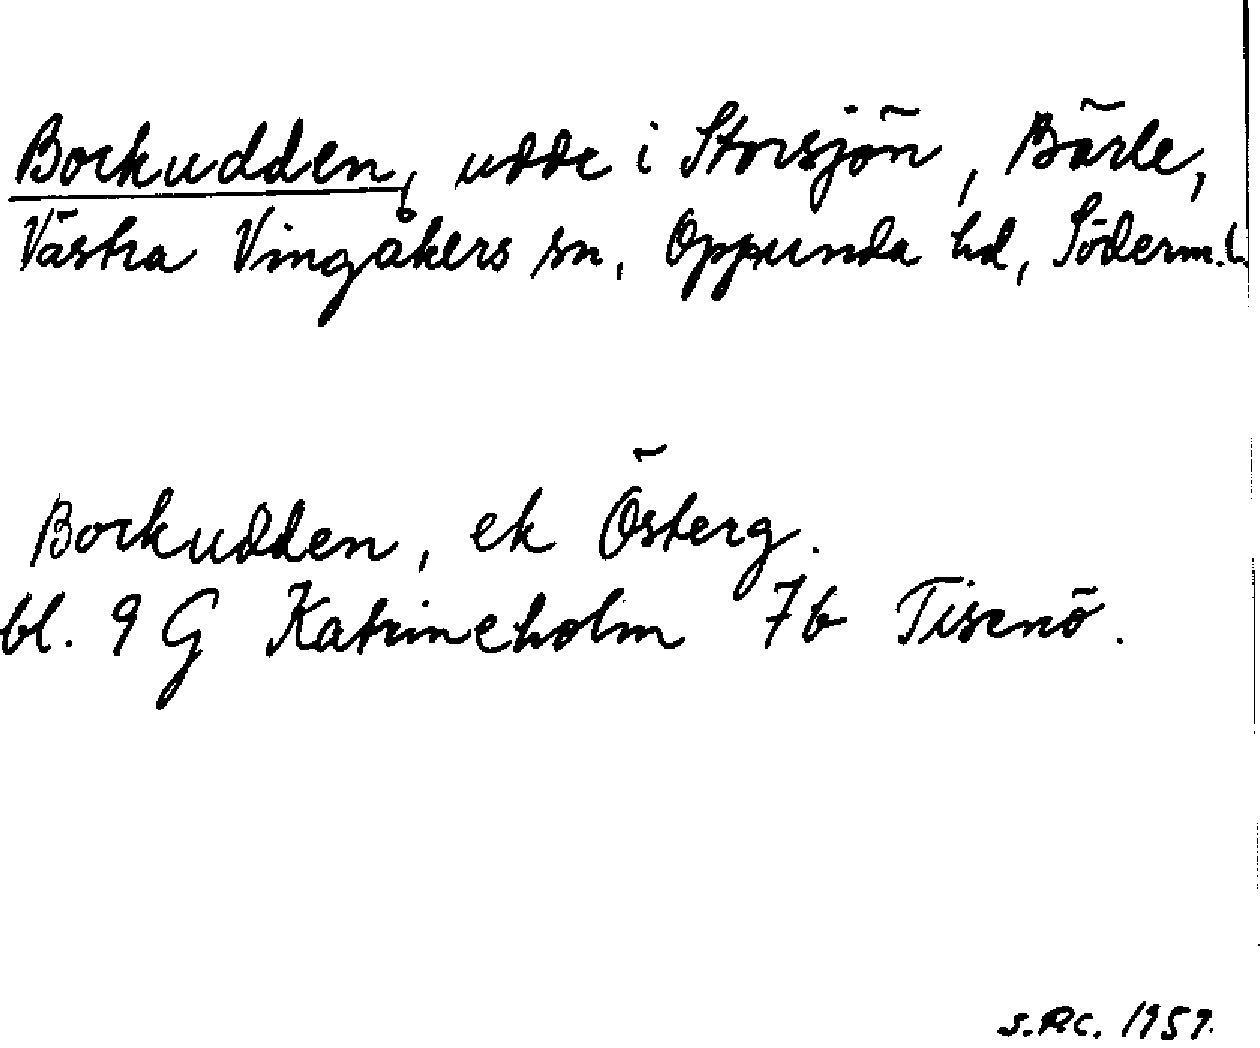 Bockudden, udde i Storsjön, Bärle,
Västra Vingåkers sn, Oppunda hd, Söderm.l.
Bockudden, ek Österg.
bl. 9 G Katrineholm 7b Tisenö.
S.Rc. 1959.